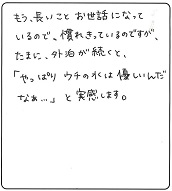 もう、長いこと お世話になって
いるので、慣れきっているのですが、
たまに、外泊が続くと、
「やっぱり ウチの水は 優しいんだ
なぁ…」と 実感します。